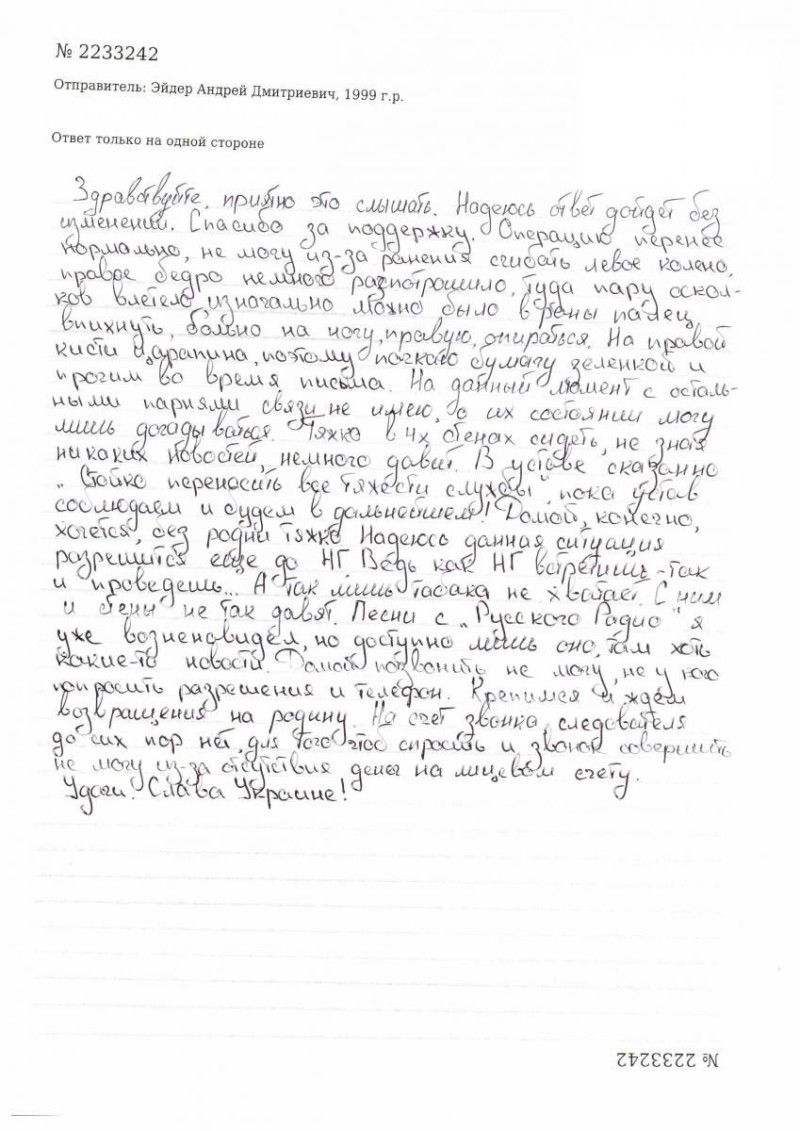 № 2233242
Отправитель: Эйдер Андрей Дмитриевич, 1999 г.р.
Ответ только на одной стороне
Здравствуйте, приятно это слышать. Надеюсь ответ дойдет без
изменений. Спасибо за поддержку. Операцию перенес
нормально, не могу из-за ранения сгибать левое колено,
правое бедро немного распотрошило, туда пару оскол-
ков влетело, изначально можно было в раны палец
впихнуть, больно на ногу, правую, опираться. На правой
кисти царапина, поэтому пачкаю бумагу зеленкой и
прочим во время письма. На данный момент с осталь-
ными парнями связи не имею, о их состоянии могу
лишь догадываться. Тяжко в 4х стенах сидеть, не зная
никаких новостей, немного давит. В уставе сказанно
„Стойко переносить все тяжести службы", пока устав
соблюдаем и будем в дальнейшем! Домой, конечно,
хочется, без родни тяжко Надеюсь данная ситуация
разрешится еще до НГ Ведь как НГ встретишь - так
и проведешь... А так лишь табака не хватает. С ним
и стены не так давят. Песни с „Русского Радио" я
уже возненавидел, но доступно лишь оно, там хоть
какие-то новости. Домой позвонить не могу, не у кого
попросить разрешения и телефон. Крепимся и ждем
возвращения на родину. На счет звонка, следователя
до сих пор нет, для того чтоб спросить и звонок совершить
не могу из-за отсутствия денег на лицевом счету.
Удачи! Слава Украине!
№ 2233242